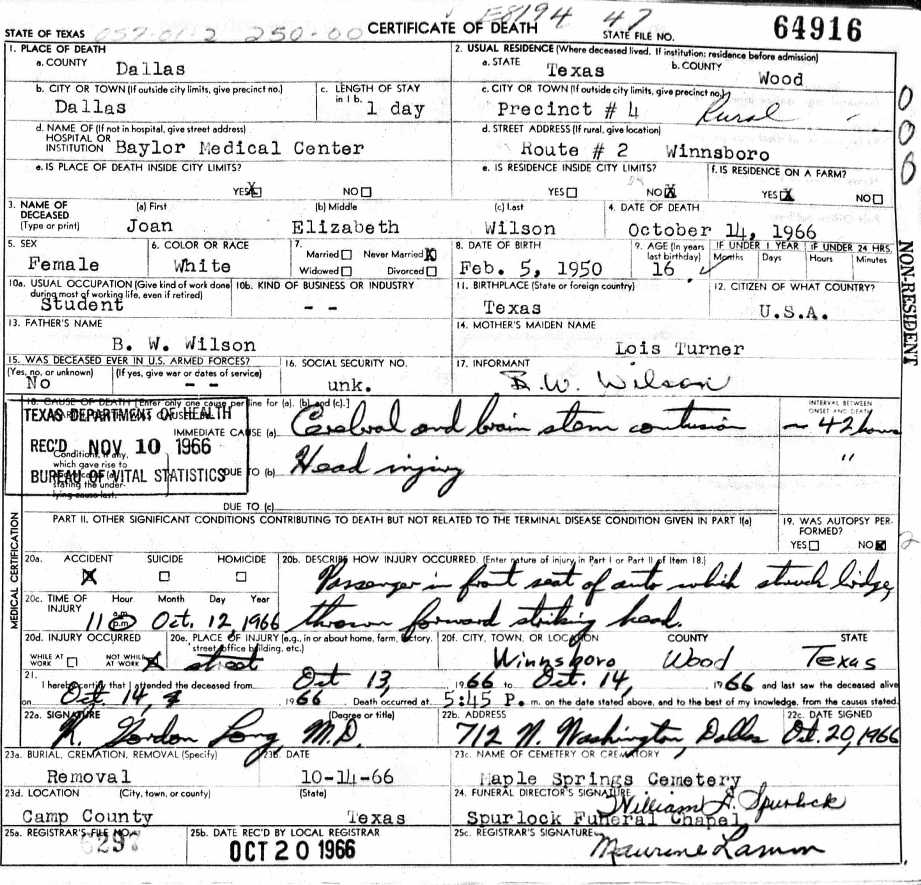 STATE OF TEXAS
CERTIFICATE OF DEATH
E8194 47
STATE FILE NO.
64916
057-01-2 250-00
1. PLACE OF DEATH
a. COUNTY
Dallas
b. CITY OR TOWN (If outside city limits, give precinct no.)
Dallas
c. LENGTH OF STAY in 1 b.
1 day
d. NAME OF (If not in hospital, give street address)
HOSPITAL OR
INSTITUTION Baylor Medical Center
e. IS PLACE OF DEATH INSIDE CITY LIMITS?
YES☒ NO☐
2. USUAL RESIDENCE (Where deceased lived. If institution: residence before admission)
a. STATE
Texas
b. COUNTY
Wood
c. CITY OR TOWN (If outside city limits, give precinct no.)
Precinct # 4 Rural
d. STREET ADDRESS (If rural, give location)
Route # 2 Winnsboro
e. IS RESIDENCE INSIDE CITY LIMITS?
YES☐ NO☒
f. IS RESIDENCE ON A FARM?
YES☒ NO☐
006
NON-RESIDENT
3. NAME OF DECEASED
(Type or print)
(a) First
Joan
(b) Middle
Elizabeth
(c) Last
Wilson
4. DATE OF DEATH
October 14, 1966
5. SEX
Female
6. COLOR OR RACE
White
7.
Married☐ Never Married☒
Widowed☐ Divorced☐
8. DATE OF BIRTH
Feb. 5, 1950
9. AGE (In years last birthday)
16
IF UNDER 1 YEAR
Months Days
IF UNDER 24 HRS.
Hours Minutes
10a. USUAL OCCUPATION (Give kind of work done during most of working life, even if retired)
Student
10b. KIND OF BUSINESS OR INDUSTRY
- -
11. BIRTHPLACE (State or foreign country)
Texas
12. CITIZEN OF WHAT COUNTRY?
U.S.A.
13. FATHER'S NAME
B. W. Wilson
14. MOTHER'S MAIDEN NAME
Lois Turner
15. WAS DECEASED EVER IN U.S. ARMED FORCES?
(Yes, no, or unknown) (If yes, give war or dates of service)
No - -
16. SOCIAL SECURITY NO.
unk.
17. INFORMANT
B. W. Wilson
18. CAUSE OF DEATH [Enter only one cause per line for (a). (b). and (c).]
TEXAS DEPARTMENT OF HEALTH
REC'D NOV 10 1966
BUREAU OF VITAL STATISTICS
IMMEDIATE CAUSE (a) Cerebral and brain stem contusion
INTERVAL BETWEEN ONSET AND DEATH
~ 42 hours
Conditions, if any, which gave rise to
stating the under-
lying cause last.
DUE TO (b) Head injury
"
DUE TO (c)
PART II. OTHER SIGNIFICANT CONDITIONS CONTRIBUTING TO DEATH BUT NOT RELATED TO THE TERMINAL DISEASE CONDITION GIVEN IN PART I(a)
19. WAS AUTOPSY PERFORMED?
YES☐ NO☒
2
MEDICAL CERTIFICATION
20a. ACCIDENT SUICIDE HOMICIDE
☒ ☐ ☐
20b. DESCRIBE HOW INJURY OCCURRED. (Enter nature of injury in Part I or Part II of Item 18.)
Passenger in front seat of auto which struck bridge,
thrown forward striking head.
20c. TIME OF INJURY
Hour Month Day Year
11 a.m. p.m. Oct. 12 1966
20d. INJURY OCCURRED
WHILE AT WORK ☐ NOT WHILE AT WORK ☒
20e. PLACE OF INJURY (e.g., in or about home, farm, factory, street, office building, etc.)
street
20f. CITY, TOWN, OR LOCATION COUNTY STATE
Winnsboro Wood Texas
21.
I hereby certify that I attended the deceased from Oct 13, 1966 to Oct. 14, 1966 and last saw the deceased alive
on Oct. 14, 1966 Death occurred at 5:45 P. m. on the date stated above, and to the best of my knowledge, from the causes stated.
22a. SIGNATURE (Degree or title)
K. Gordon Long M.D.
22b. ADDRESS
712 N. Washington, Dallas
22c. DATE SIGNED
Oct. 20, 1966
23a. BURIAL, CREMATION, REMOVAL (Specify)
Removal
23b. DATE
10-14-66
23c. NAME OF CEMETERY OR CREMATORY
Maple Springs Cemetery
23d. LOCATION (City, town, or county) (State)
Camp County Texas
24. FUNERAL DIRECTOR'S SIGNATURE
William A. Spurlock
Spurlock Funeral Chapel
25a. REGISTRAR'S FILE NO.
6297
25b. DATE REC'D BY LOCAL REGISTRAR
OCT 20 1966
25c. REGISTRAR'S SIGNATURE
Maurine Lamm